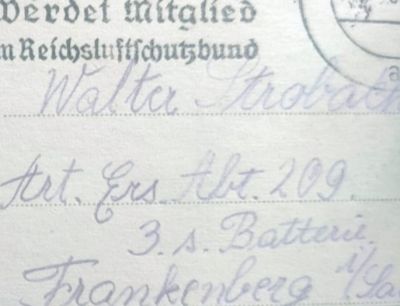 Werdet Mitglied
m Reichsluftschutzbund
Walter Strobach
Art. Ers. Abt. 209.
3. s. Batterie
Frankenberg i/Sa